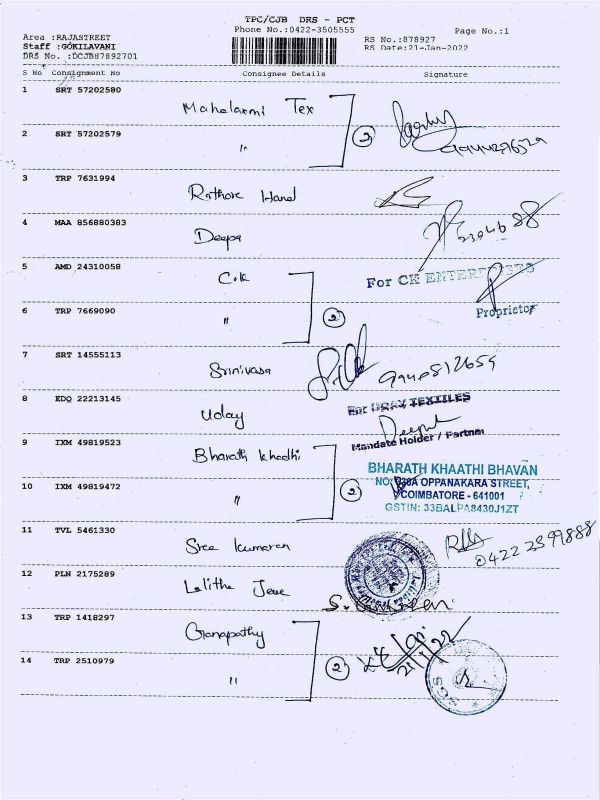 TPC/CJB DRS - PCT
Phone No.:0422-3505555
Page No.:1
Area :RAJASTREET
Staff :GOKILAVANI
DRS No. :DCJB87892701
RS No.:878927
RS Date:21-Jan-2022
S No Consignment No Consignee Details Signature
1 SRT 57202580 Mahalaxmi Tex
2 SRT 57202579 "
2
3 TRP 7631994 Rathore Hand
4 MAA 856880383 Deepa
5 AMD 24310058 C.K
For CK ENTERPRISES
6 TRP 7669090 "
2
Proprietor
7 SRT 14555113 Srinivasa
8 EDQ 22213145 Uday
For UDAY TEXTILES
Deepak
Mandate Holder / Partner
9 IXM 49819523 Bharath Khadhi
BHARATH KHAATHI BHAVAN
10 IXM 49819472 "
2
OPPANAKARA STREET,
COIMBATORE - 641001
GSTIN: 33BALPA8430J1ZT
11 TVL 5461330 Sree Kumaran
0422 2399888
12 PLN 2175289 Lalitha Jewe
13 TRP 1418297 Ganapathy
14 TRP 2510979 "
2
21/1/22
SGS